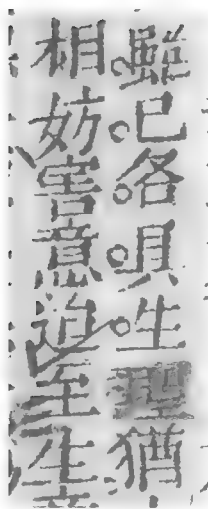 雖已各具生理猶
相妨害意迨至生